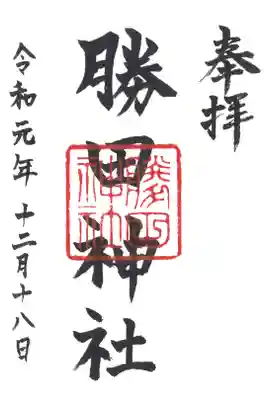 奉拝
勝田神社
勝田神社
令和元年十二月十八日